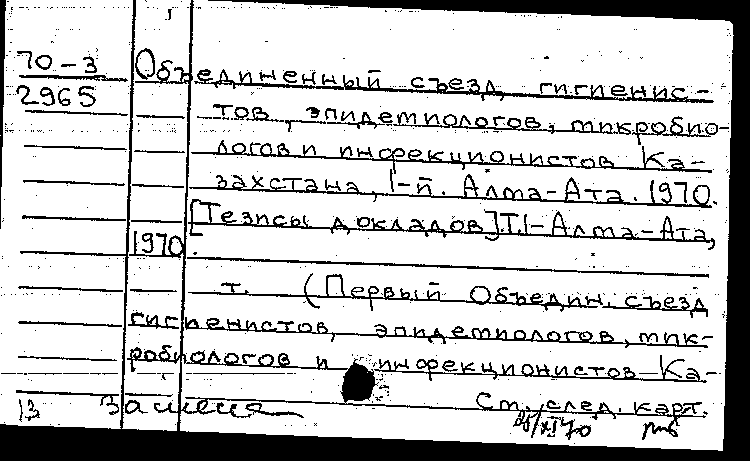 70-3 Объединенный съезд гигиенис-
2965 тов, эпидемиологов, микробио-
логов и инфекционистов Ка-
захстана, I-й. Алма-Ата. 1970.
[Тезисы докладов]. Т.I- Алма-Ата,
1970.
т. (Первый Объедин. съезд
гигиенистов, эпидемиологов, мик-
робиологов и инфекционистов Ка-
13 Замена См. след. карт.